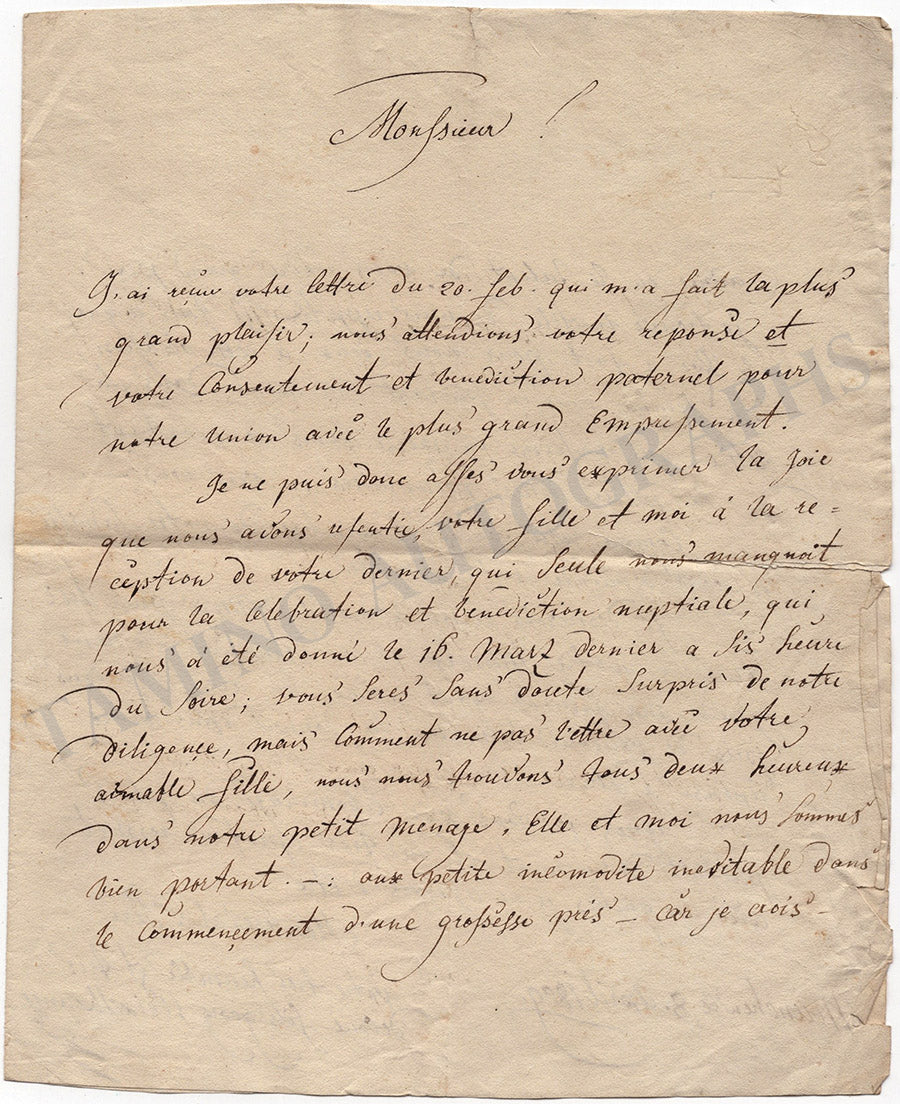 Monsieur !
J'ai reçue votre lettre du 20. feb. qui m'a fait la plus
grand plaisir; nous attendions votre reponse et
votre Consentement et benediction paternel pour
notre union avec le plus grand Empressement.
Je ne puis donc assés vous exprimer la Joie
que nous avons resentie, votre fille et moi á la re=
ception de votre dernier, qui seule nous manquoit
pour la Celebration et benediction nuptiale, qui
nous á été donné le 16. Marz dernier a sis heure
du soire; vous seres sans doute surpris de notre
diligençe, mais Comment ne pas l'ettre avec votre
aimable fille, nous nous trouvons tous deux heureux
dans notre petit menage, Elle et moi nous sommes
bien portant. - : aux petite incomodite inevitable dans
le Commençement d'une grossesse prés - Car je crois -
TAMINO AUTOGRAPHS